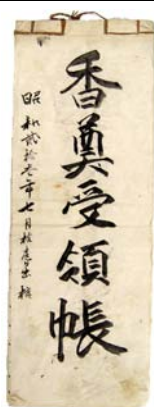 香奠受領帳
昭和貳拾叁年七月